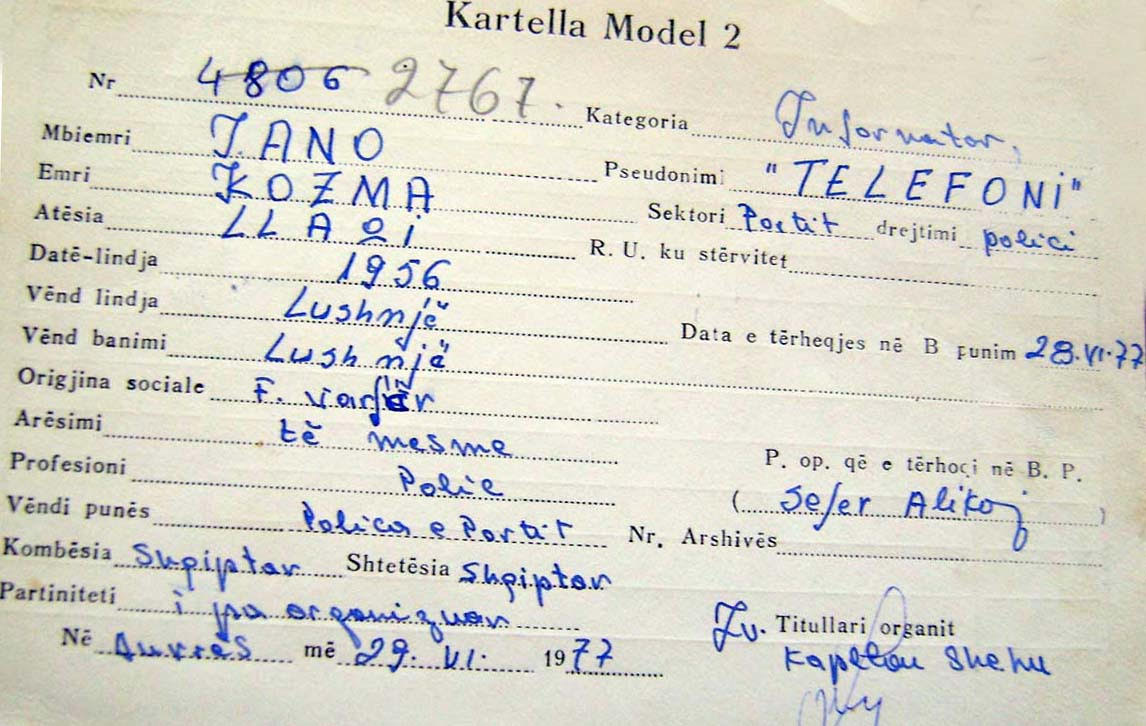 Kartella Model 2
Nr 4806 2767. Kategoria Informator,
Mbiemri JANO Pseudonimi "TELEFONI"
Emri KOZMA Sektori Portit drejtimi polici
Atësia LLAQI R. U. ku stërvitet
Datë-lindja 1956
Vënd lindja Lushnjë Data e tërheqjes në B punim 28.VI.77
Vënd banimi Lushnjë
Origjina sociale F. varfër
Arësimi të mesme P. op. që e tërhoqi në B. P.
Profesioni Polic ( Sefer Alikoj )
Vëndi punës Polica e Portit Nr. Arshivës
Kombësia Shqiptar Shtetësia Shqiptar
Partiniteti i pa organizuar Zv. Titullari organit
Në Durrës më 29. VI. 1977 Kapetan Shehu